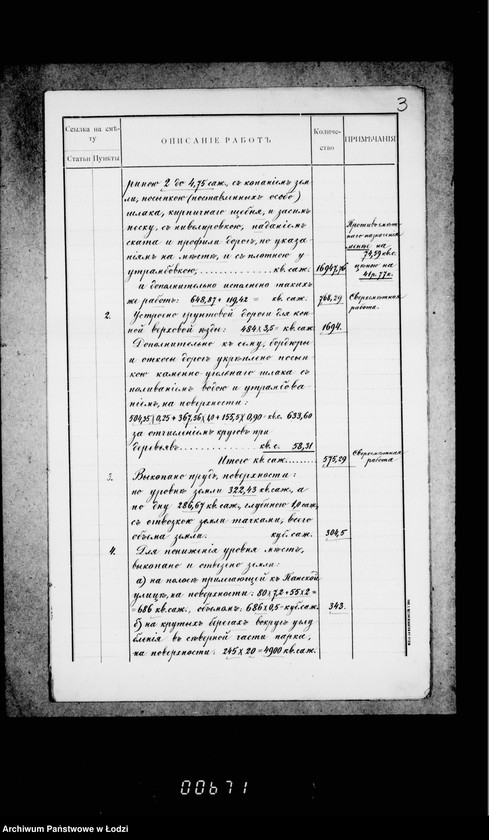 3
Ссылка на смѣ-
ту
Статьи Пункты
ОПИСАНІЕ РАБОТЪ
Количе-
ство
ПРИМѢЧАНІЯ
риною 2 до 4,75 саж., съ копаніемъ зем-
ли, посыпкою (поставленныхъ особо)
шлака, кирпичнаго щебня, и засып.
песку, съ нивелировкою, паданіемъ
ската и профили дорогъ, по указа-
ніямъ на мѣстѣ, и съ плотною у
утрамбовкою, кв. саж. 16947,76
на
74,59 кв. с.
цѣною на
41 р. 77 к.
и дополнительно исполнено такихъ
же работъ: 648,87 + 119,42 = кв. саж. 768,29 Сверхсмѣтная
работа.
2. Устроено грунтовой дороги для кон-
ной верховой ѣзды: 484 X 3,5 = кв. саж 1694.
Дополнительно къ сему, бордюры
и откосы дорогъ укрѣплено посып-
кою каменно-угольнаго шлака съ
поливаніемъ водою и утрамбова-
ніемъ, на поверхности:
504,35 X 0,25 + 367,56 X 1,0 + 155,5 X 0,90 = кв. с. 633,60
за отчисленіемъ круговъ при
деревьяхъ кв. с. 58,31
Итого кв. саж. 575,29 Сверхсмѣтная
работа
3. Выкопано прудъ, поверхности:
по уровню земли 322,43 кв. саж., а
по дну 286,67 кв. саж., глубиною 1,0 саж,
съ отвозкою земли тачками, всего
объема земли: куб. саж. 304,5
4. Для пониженія уровня мѣстъ,
выкопано и отвезено земли:
а) на полосѣ прилегающей къ Панской
улицѣ, на поверхности: 80 X 7,2 + 55 X 2 =
= 686 кв. саж., объемомъ: 686 X 0,5 = куб. саж. 343.
б) на крутыхъ берегахъ вокругъ углу
бленія въ сѣверной части парка,
на поверхности: 245 X 20 = 4900 кв. саж.
00671
Archiwum Państwowe w Łodzi